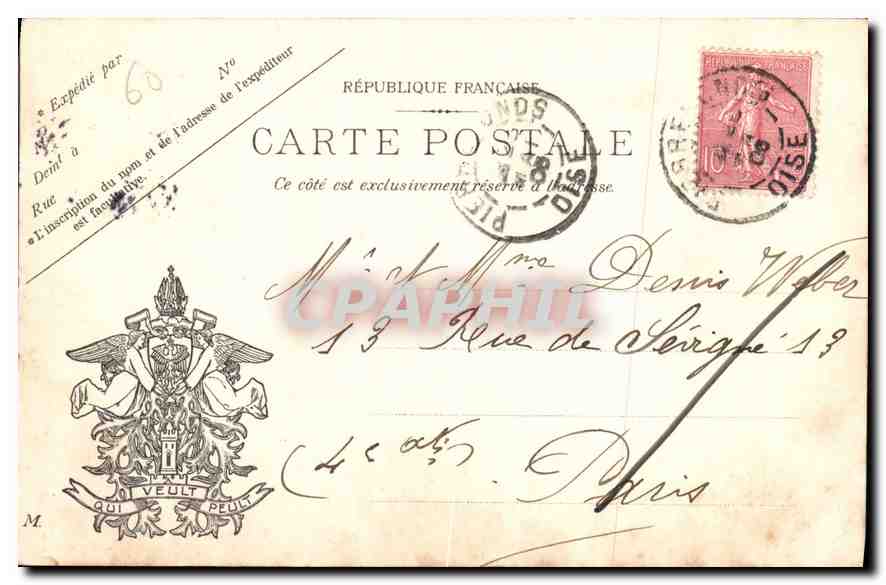 * Expédié par
Nº
60
Demt à
Rue
* L'inscription du nom et de l'adresse de l'expéditeur
est facultative.
RÉPUBLIQUE FRANÇAISE
CARTE POSTALE
Ce côté est exclusivement réservé à l'adresse.
PIERREFONDS
OISE
RÉPUBLIQUE FRANÇAISE
10
PIERREFONDS
OISE
08
Mr et Mme Denis Weber
13 Rue de Sévigné 13
(4e
Paris
CPAPHIL
QUI VEULT PEULT
M.